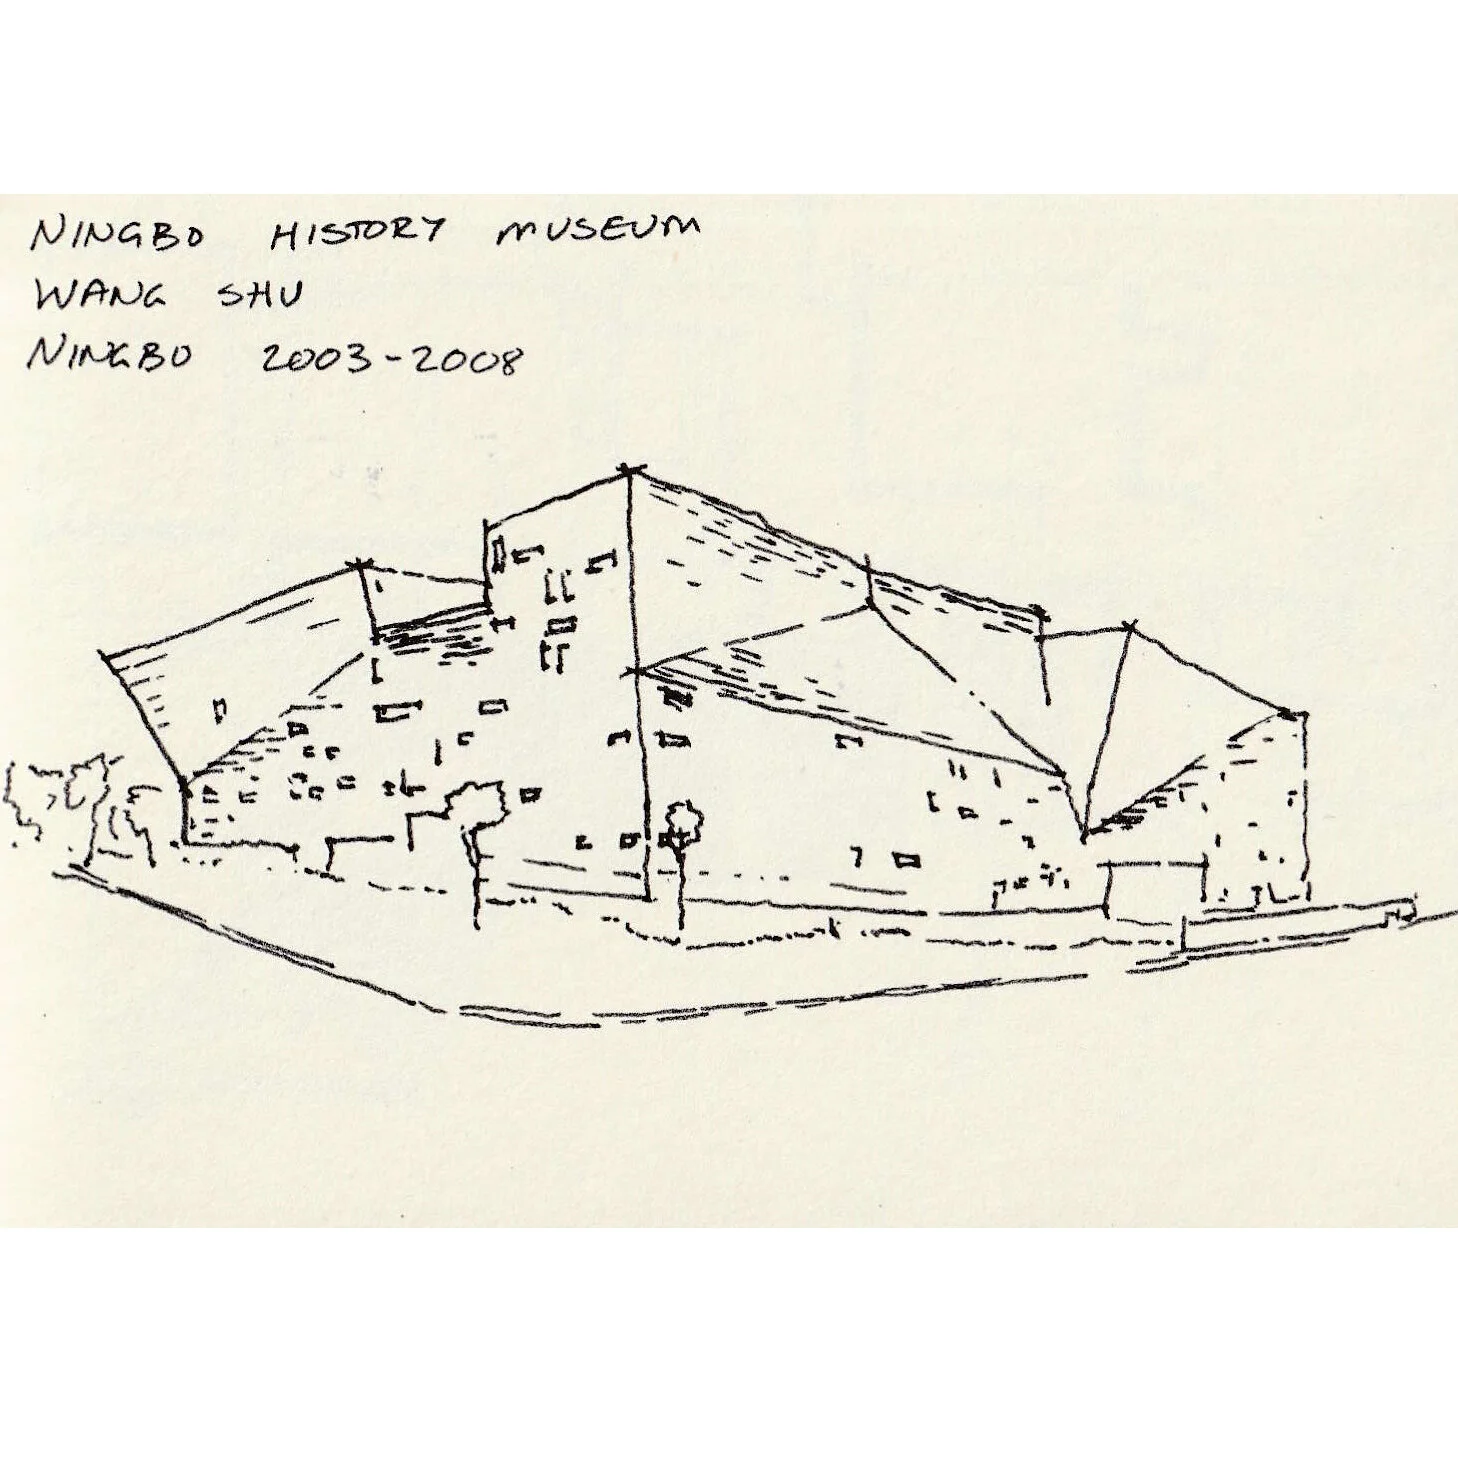 NINGBO HISTORY MUSEUM
WANG SHU
NINGBO 2003-2008